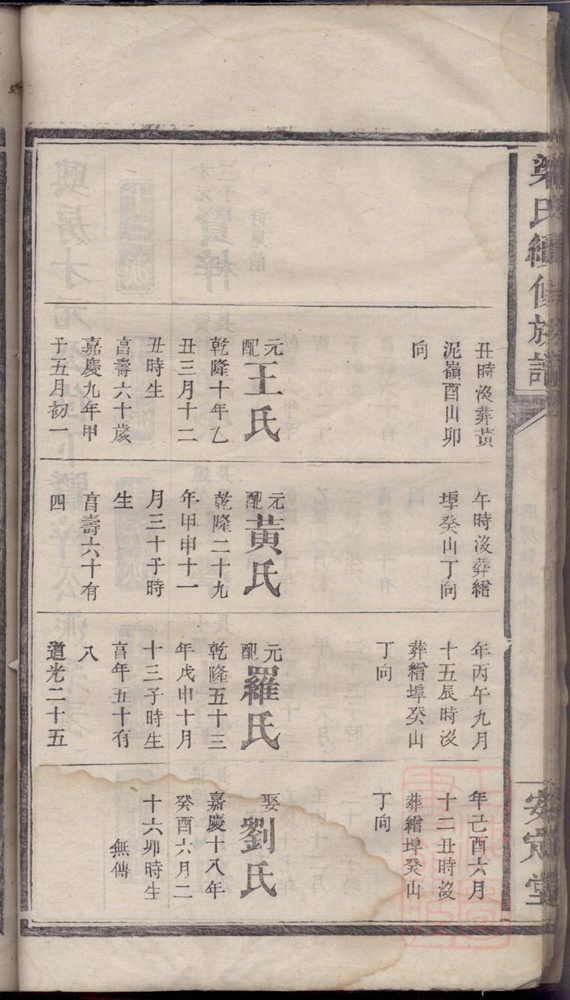 梁氏續修族譜
安定堂
丑時沒葬黃
泥嶺酉山卯
向
元配王氏
乾隆十年乙
丑三月十二
丑時生
亯壽六十歲
嘉慶九年甲
子五月初一
午時沒葬繒
埠癸山丁向
元配黃氏
乾隆二十九
年甲申十一
月三十子時
生
亯壽六十有
四
年丙午九月
十五辰時沒
葬繒埠癸山
丁向
元配羅氏
乾隆五十三
年戊申十月
十三子時生
亯年五十有
八
道光二十五
年己酉六月
十二丑時沒
葬繒埠癸山
丁向
娶劉氏
嘉慶十八年
癸酉六月二
十六卯時生
無傳